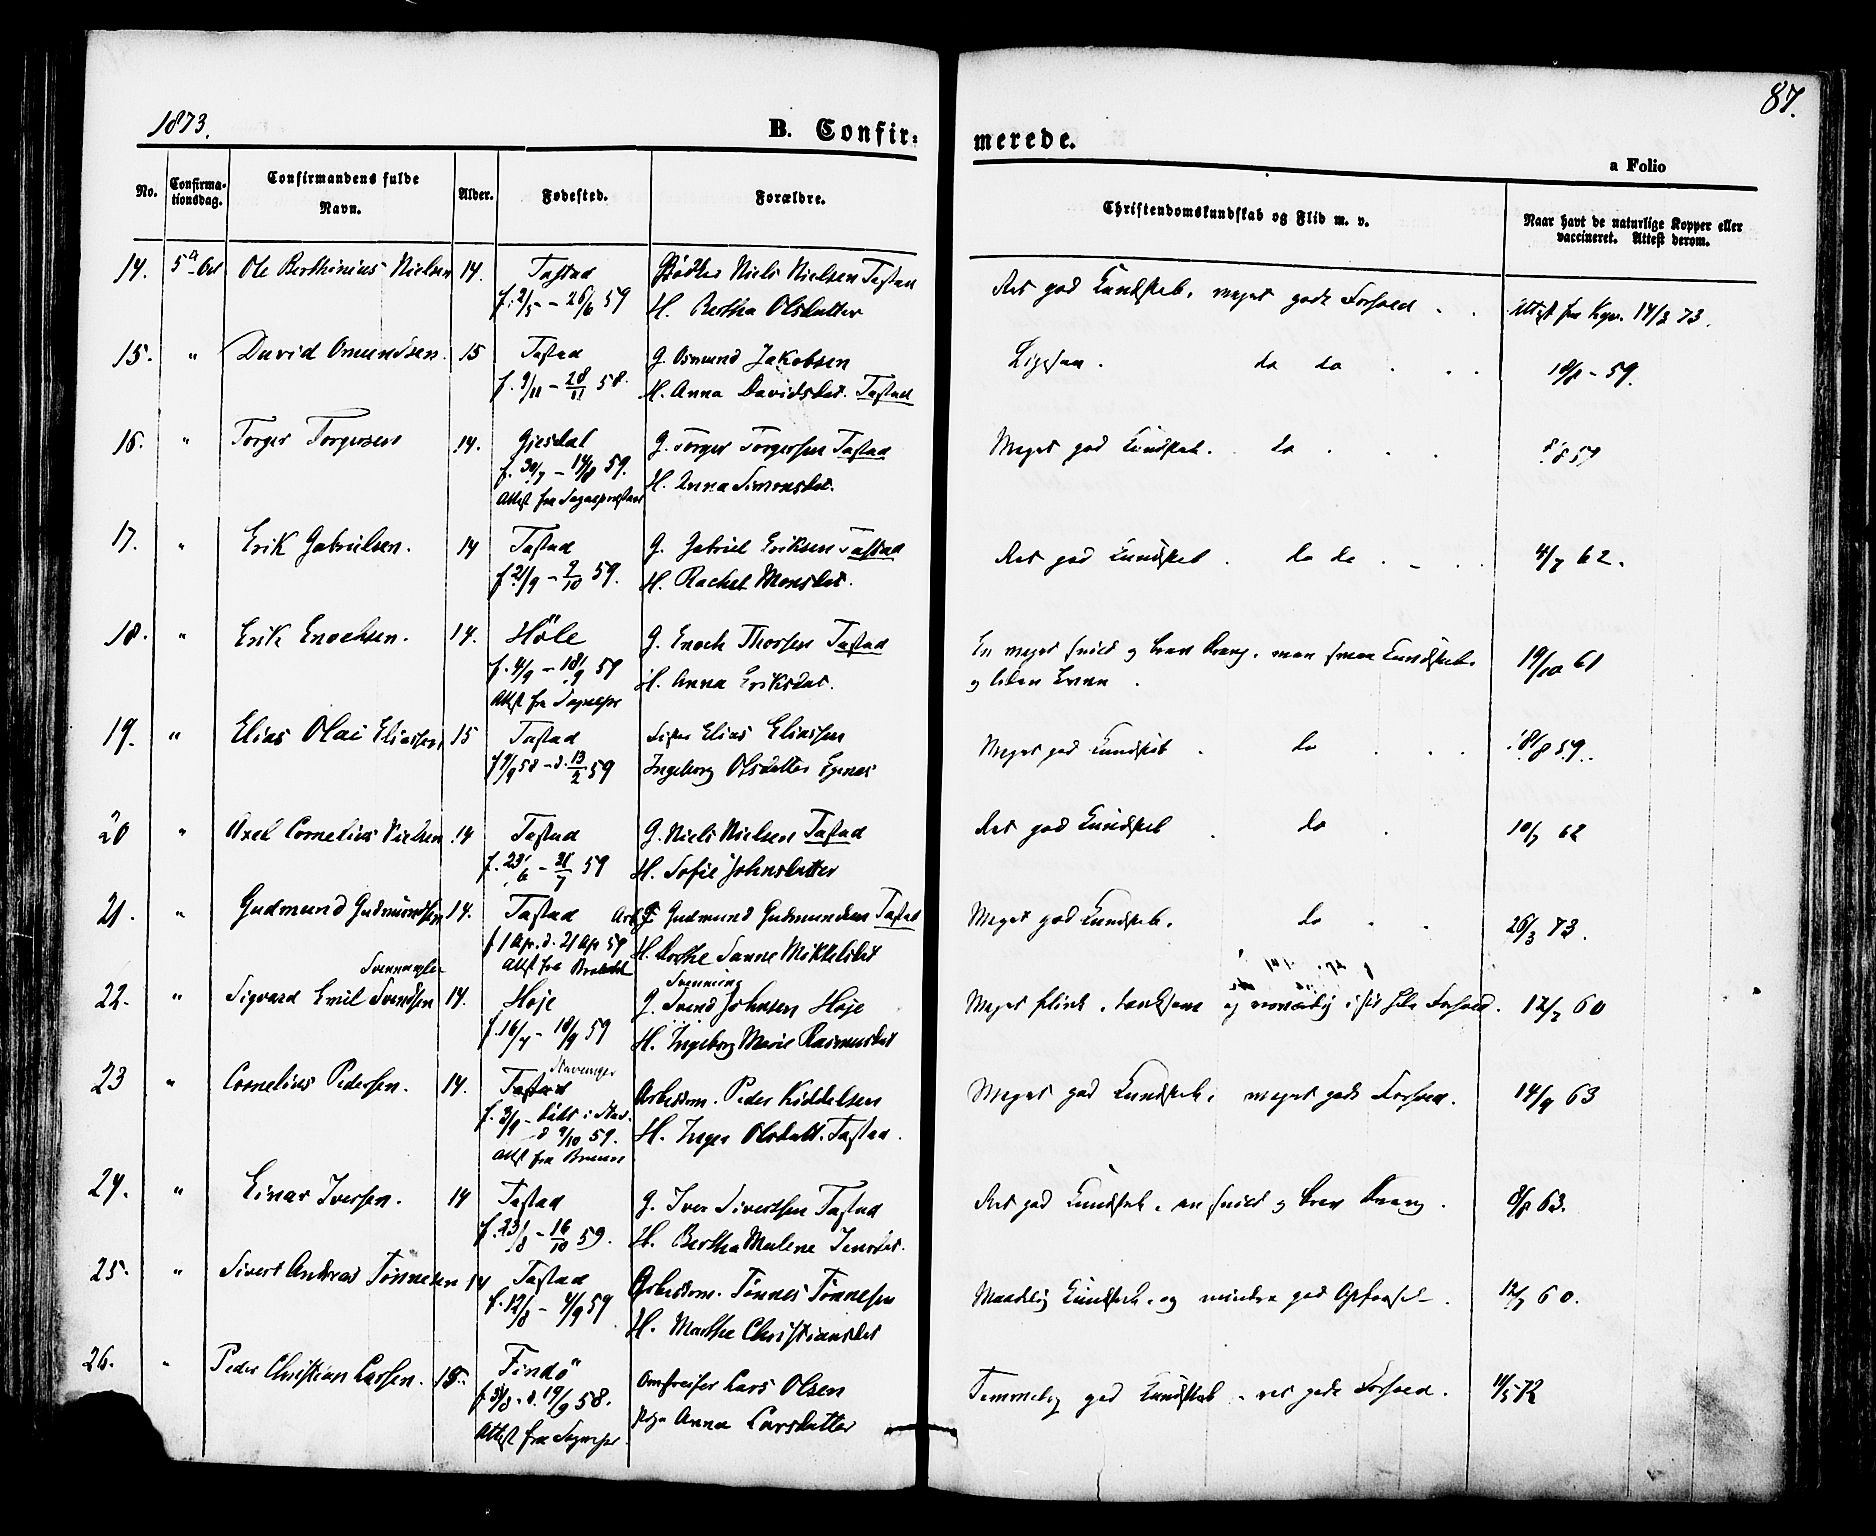 1873.
B. Confir-
merede.
87.
a Folio
No.
Confirma-
tionsdag.
Confirmandens fulde
Navn.
Alder.
Fødested.
Forældre.
Christendomskundskab og Flid m. v.
Naar havt de naturlige Kopper eller
vaccineret. Attest derom.
14. 5te Oct Ole Berthinius Nielsen 14. Tastad Bødker Niels Nielsen Tastad Ret god Kundskab, meget godt Forhold . .
f. 2/5 – 26/6 59 H. Bertha Olsdatter Attest fra 14/3 73.
15. " David Omundsen. 15 Tastad G. Osmund Jakobsen Ligesaa . do do . . .
f. 9/11 – 28/11 58. H. Anna Davidsdat. Tastad 18/8 – 59.
16. " Torger Torgersen 14. Gjesdal G. Torger Torgersen Tastad Meget god Kundskab. do . . .
f. 30/7 – 14/8 59. H. Anna Simonsdat. 8/8 59
Attest fra Sognepresten
17. " Erik Gabrielsen. 14 Tastad G. Gabriel Eriksen Tastad Ret god Kundskab . do do . . .
f. 21/9 – 9/10 59. H. Rachel Monsdat. 4/7 62.
18. " Erik Enochsen. 14. Høle G. Enoch Thorsen Tastad En meget snild og brav Dreng, men smaa Kundskab
f. 4/9 – 18/9 59 H. Anna Eriksdat. og liden Evne . 19/10 61
Attest fra Sognepr
19. " Elias Olai Eliassen 15 Tastad Elias Eliassen Meget god Kundskab . do . . .
f 9/9 58 – d. 13/2 59 Ingeborg Olsdatter Egenes 18/8 59.
20 " Axel Cornelius Nielsen 14 Tastad G. Niels Nielsen Tastad Ret god Kundskab . do .
f. 23/6 – 31/7 59 H. Sofie Johnsdatter 10/7 62
21. " Gudmund Gudmundsen 14. Tastad Arb. G. Gudmund Gudmundsen Tastad Meget god Kundskab. do . . .
f 1 Apr. d. 21 Apr 59 H. Dorthe Sanne Mikkelsdat 26/3 73.
Attest fra
Svenning
22. " Sigvard Emil Svendsen 14. Høje G. Svend Johnsen Høje Meget flink, tænksom og i sit hele Forhold. 12/7 60
f. 16/7 – 18/9 59 H. Ingeborg Marie Rasmusdat
Stavanger
23 " Cornelius Pedersen. 14. Tastad Arbeidsm. Peder Kiddelsen Meget god Kundskab, meget godt Forhold. 14/9 63
f. 3/9 – døbt i Stav. H. Inger Olsdatt. Tastad .
d 9/10 59.
Attest fra
24. " Einar Iversen. 14 Tastad G. Iver Sivertsen Tastad Ret god Kundskab, en snild og brav Dreng .
f. 23/8 – 16/10 59. H. Bertha Malene Jensdat. 8/8 63.
25. " Sivert Andreas Tønnesen 14 Tastad Arbeidsm. Tønnes Tønnesen Maadelig Kundskab, og mindre god Opførsel .
f. 12/8 – 4/9 59 H. Marthe Christiansdat 12/7 60.
26. " Peder Christian Larsen. 15. Findø Omstreifer Lars Olsen Temmelig god Kundskab, ret godt Forhold.
f. 31/8 – d. 19/9 58. Pige Anna Larsdatter 11/5 72
Attest fra Sognepr.